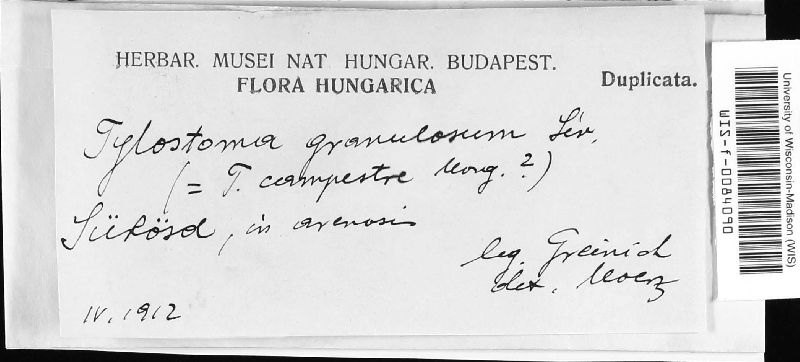 HERBAR. MUSEI NAT. HUNGAR. BUDAPEST.
FLORA HUNGARICA
Duplicata.
Tylostoma granulosum Lév.
(= T. campestre Morg. ?)
Sükösd, in arenosis
leg. Greinich
det. Moesz
IV. 1912
University of Wisconsin-Madison (WIS)
WIS-f-0084090